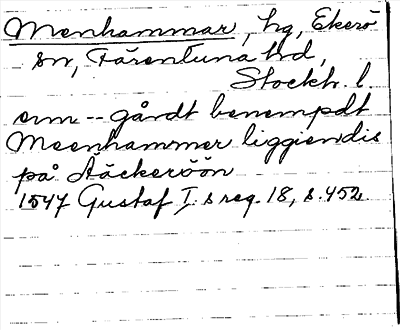 Menhammar, hg, Ekerö
sn, Färentuna hd,
Stockh. l.
em -- gårdt benempdt
Meenhammer liggiendis
på Aäckeröön
1547 Gustaf I:s reg. 18, s. 452.